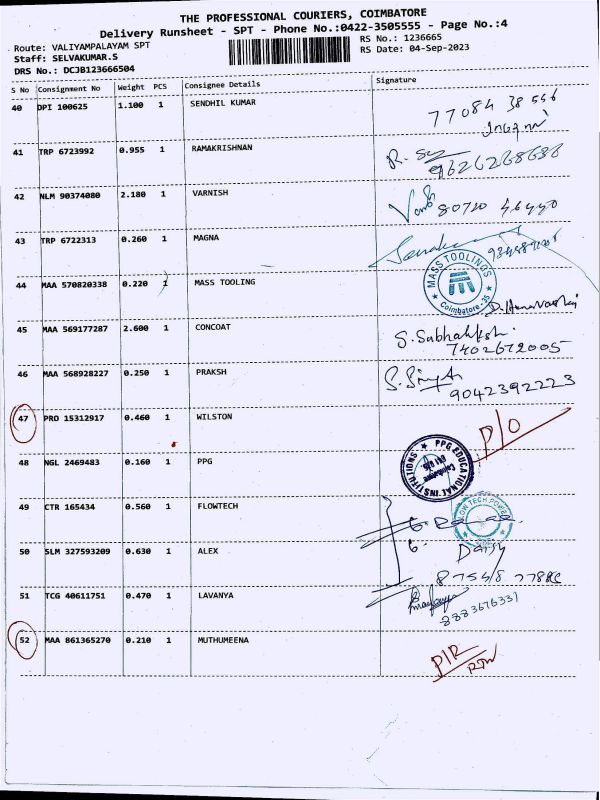 THE PROFESSIONAL COURIERS, COIMBATORE
Delivery Runsheet - SPT - Phone No.:0422-3505555 - Page No.:4
Route: VALIYAMPALAYAM SPT
RS No.: 1236665
Staff: SELVAKUMAR.S
RS Date: 04-Sep-2023
DRS No.: DCJB123666504
S No Consignment No Weight PCS Consignee Details Signature
40 DPI 100625 1.100 1 SENDHIL KUMAR 77084 38 556
41 TRP 6723992 0.955 1 RAMAKRISHNAN
42 NLM 90374080 2.180 1 VARNISH 80720 46440
43 TRP 6722313 0.260 1 MAGNA
44 MAA 570820338 0.220 1 MASS TOOLING
MASS TOOLINGS
Coimbatore-35
45 MAA 569177287 2.600 1 CONCOAT
7402672005
46 MAA 568928227 0.250 1 PRAKSH
9042392223
47 PRO 15312917 0.460 1 WILSTON P/O
48 NGL 2469483 0.160 1 PPG
PPG EDUCATIONAL INSTITUTIONS
49 CTR 165434 0.560 1 FLOWTECH
50 SLM 327593209 0.630 1 ALEX
Daisy
51 TCG 40611751 0.470 1 LAVANYA
8883676331
52 MAA 861365270 0.210 1 MUTHUMEENA P/R